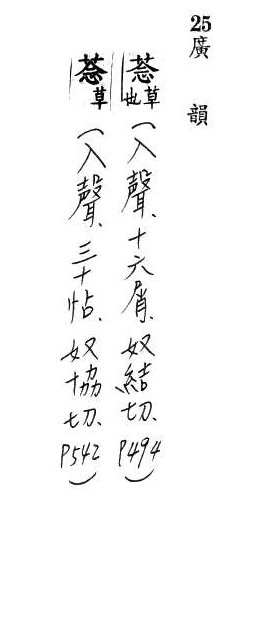 25 廣韻
菍 草也 (入聲、十六屑、奴結切、P494)
菍 草 (入聲、三十帖、奴協切、P542)